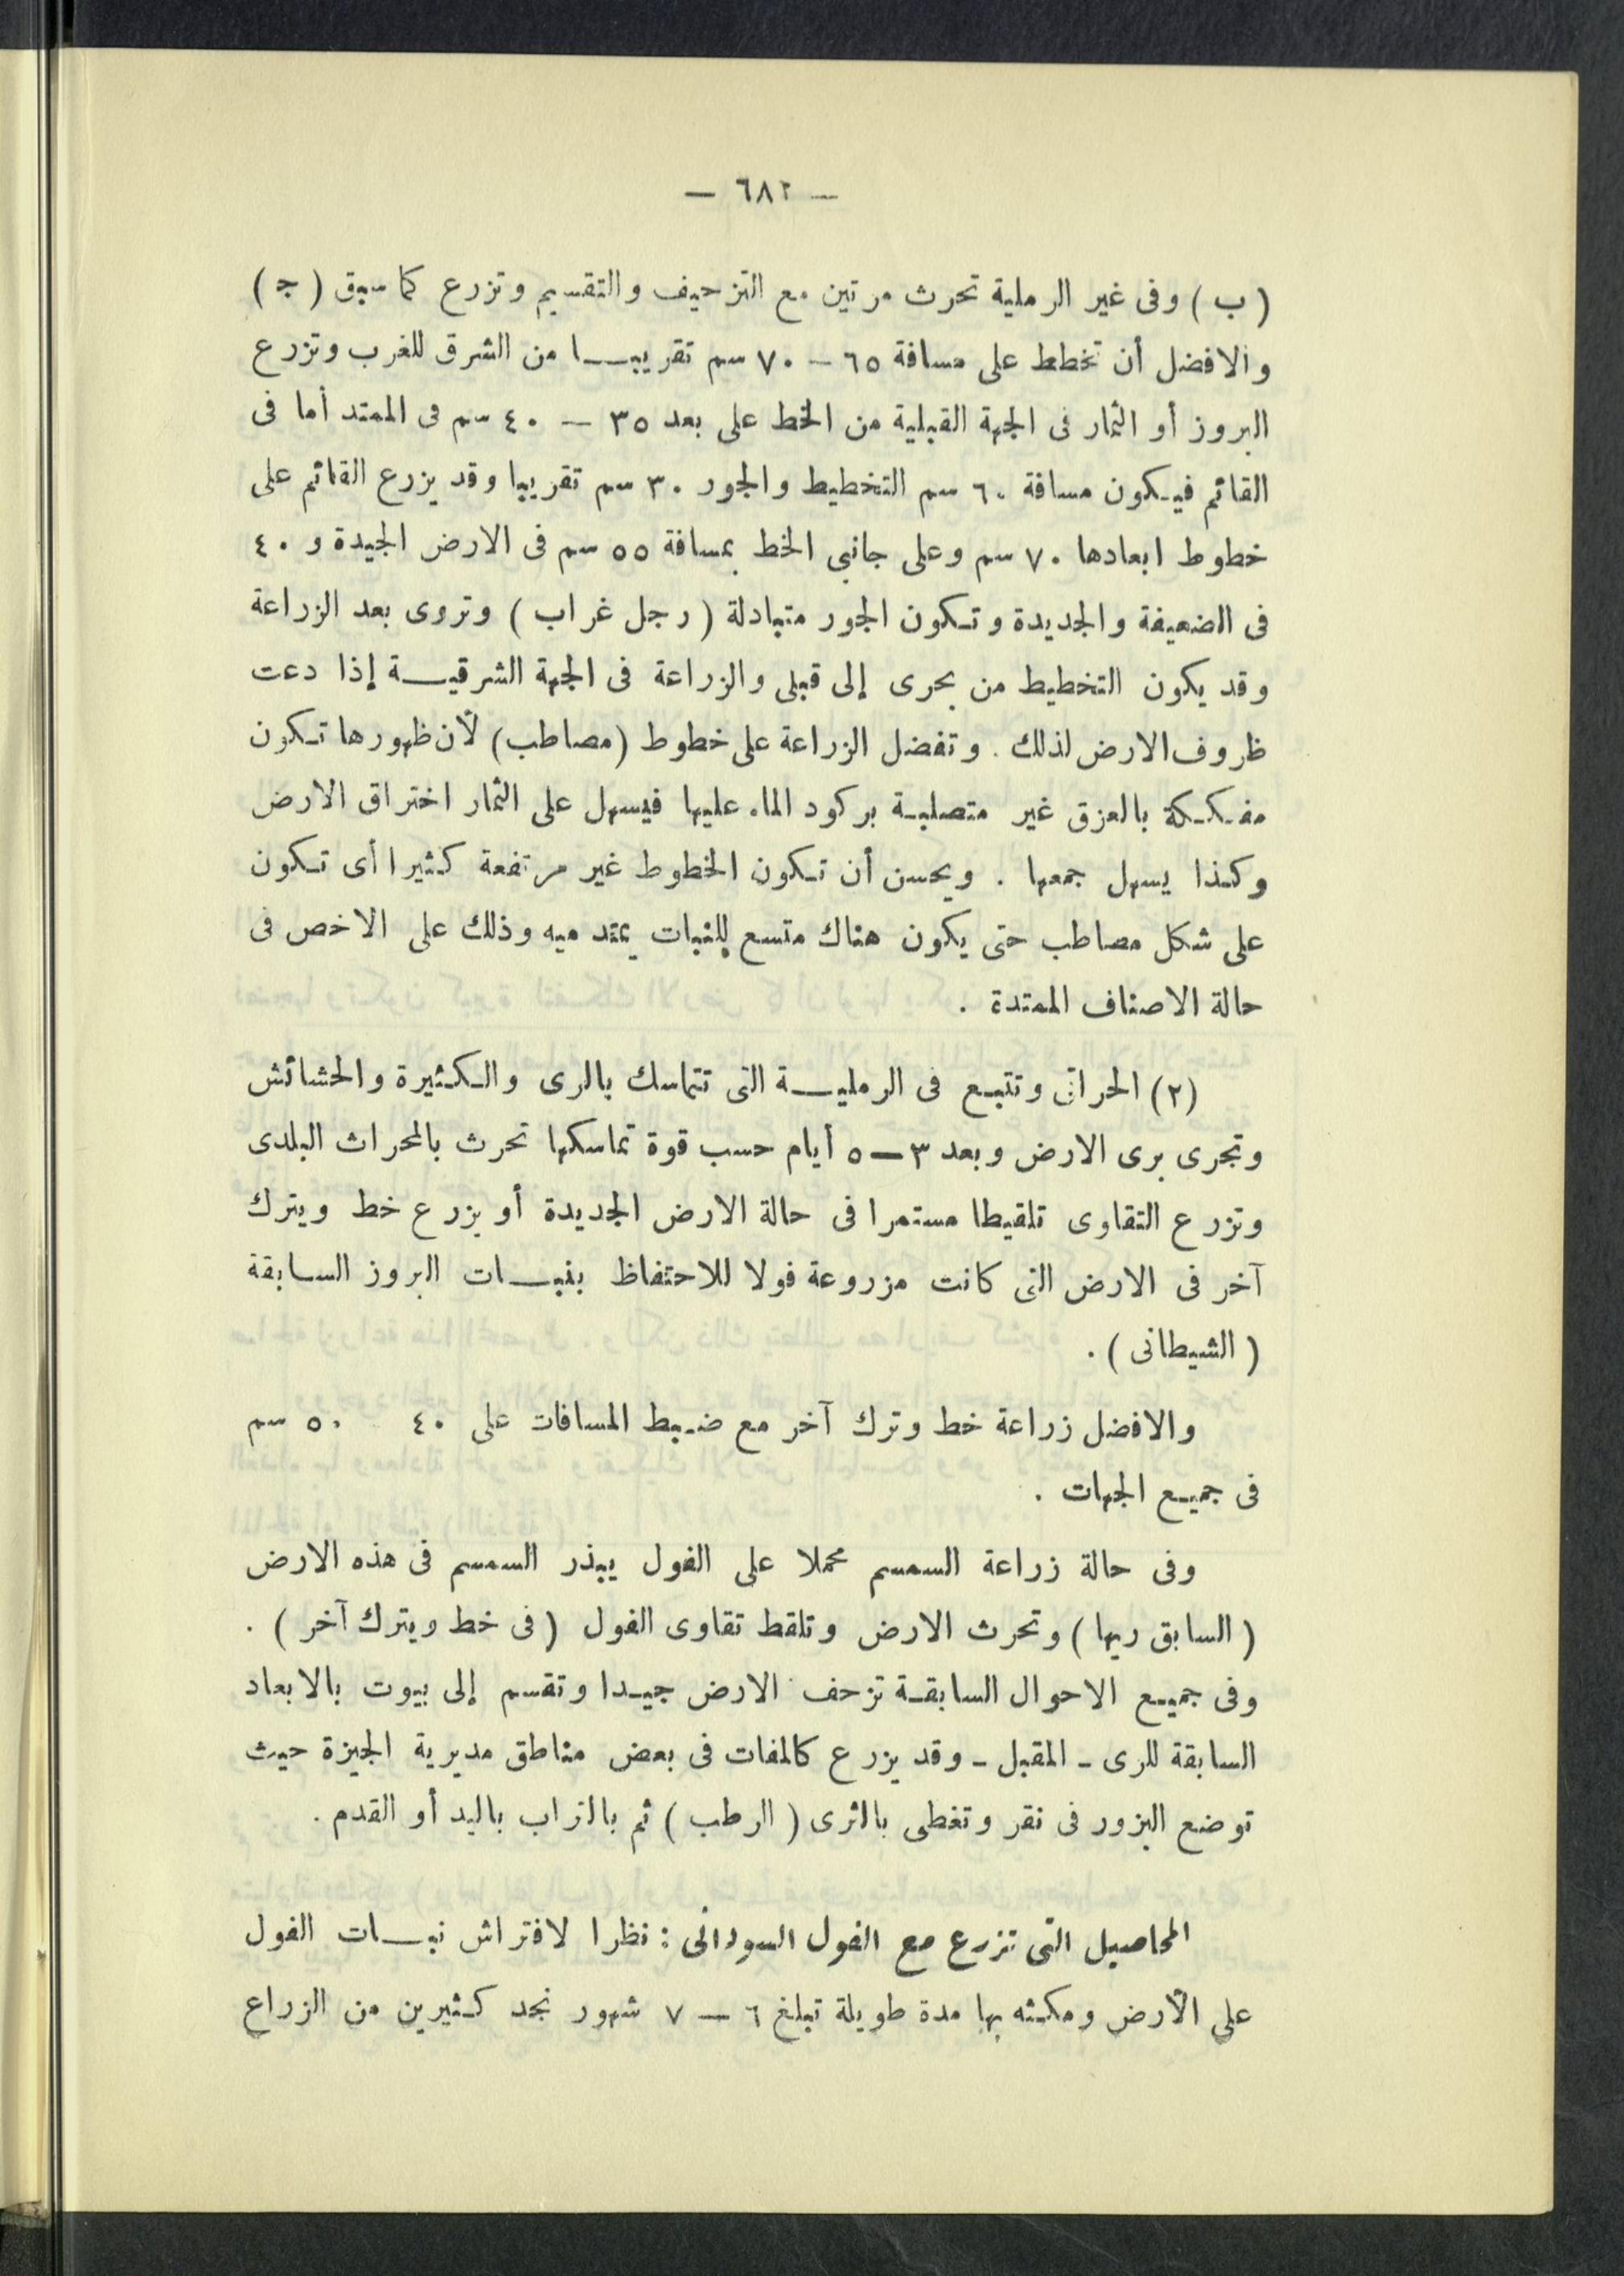 — ٦٨٢ —
( ب ) وفى غير الرملية تحرث مرتين مع التزحيف والتقسيم وتزرع كما سبق ( ج )
والافضل أن تخطط على مسافة ٦٥ – ٧٠ سم تقريبـــا من الشرق للغرب وتزرع
البروز أو الثمار فى الجهة القبلية من الخط على بعد ٣٥ — ٤٠ سم فى الممتد أما فى
القائم فيكون مسافة ٦٠ سم التخطيط والجور ٣٠ سم تقريبا وقد يزرع القائم على
خطوط ابعادها ٧٠ سم وعلى جانبى الخط بمسافة ٥٥ سم فى الارض الجيدة و ٤٠
فى الضعيفة والجديدة وتكون الجور متبادلة ( رجل غراب ) وتروى بعد الزراعة
وقد يكون التخطيط من بحرى إلى قبلى والزراعة فى الجهة الشرقيـــة إذا دعت
ظروف الارض لذلك . وتفضل الزراعة على خطوط (مصاطب) لأن ظهورها تكون
مفككة بالعزق غير متصلبة بركود الماء عليها فيسهل على الثمار اختراق الارض
وكذا يسهل جمعها . ويحسن أن تكون الخطوط غير مرتفعة كثيرا أى تكون
على شكل مصاطب حتى يكون هناك متسع للنبات يمتد ميه وذلك على الاخص فى
حالة الاصناف الممتدة .
(٢) الحراتى وتتبع فى الرمليـــة التى تتماسك بالرى والكثيرة والحشائش
وتجرى برى الارض وبعد ٣ — ٥ أيام حسب قوة تماسكها تحرث بالمحراث البلدى
وتزرع التقاوى تلقيطا مستمرا فى حالة الارض الجديدة أو يزرع خط ويترك
آخر فى الارض التى كانت مزروعة فولا للاحتفاظ بنبـــات البروز السابقة
( الشيطانى ) .
والافضل زراعة خط وترك آخر مع ضبط المسافات على ٤٠ ٥٠ سم
فى جميع الجهات .
وفى حالة زراعة السمسم محملا على الفول يبذر السمسم فى هذه الارض
( السابق ريها ) وتحرث الارض وتلقط تقاوى الفول ( فى خط ويترك آخر ) .
وفى جميع الاحوال السابقة تزحف الارض جيدا وتقسم إلى بيوت بالابعاد
السابقة للرى ـ المقبل ـ وقد يزرع كالمفات فى بعض مناطق مديرية الجيزة حيث
توضع البزور فى نقر وتغطى بالثرى ( الرطب ) ثم بالتراب باليد أو القدم .
المحاصيل التى تزرع مع الفول السودانى : نظرا لافتراش نبـــات الفول
على الأرض ومكثه بها مدة طويلة تبلغ ٦ — ٧ شهور نجد كثيرين من الزراع